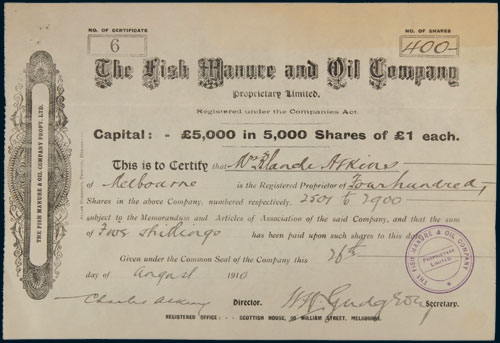 NO. OF CERTIFICATE
6
NO. OF SHARES
400
The Fish Manure and Oil Company
Proprietary Limited.
Registered under the Companies Act.
Capital: - £5,000 in 5,000 Shares of £1 each.
This is to Certify that Mrs Blande Atkins
of Melbourne is the Registered Proprietor of Four hundred
Shares in the above Company, numbered respectively, 2501 to 2900
subject to the Memorandum and Articles of Association of the said Company, and that the sum
of Four shillings has been paid upon such shares to this date
Given under the Common Seal of the Company this 26th
day of August 1910
Charles Director. Secretary.
REGISTERED OFFICE: - SCOTTISH HOUSE, 90 WILLIAM STREET, MELBOURNE.
THE FISH MANURE & OIL COMPANY PROPY. LTD.
THE FISH MANURE & OIL COMPANY
PROPRIETARY
LIMITED